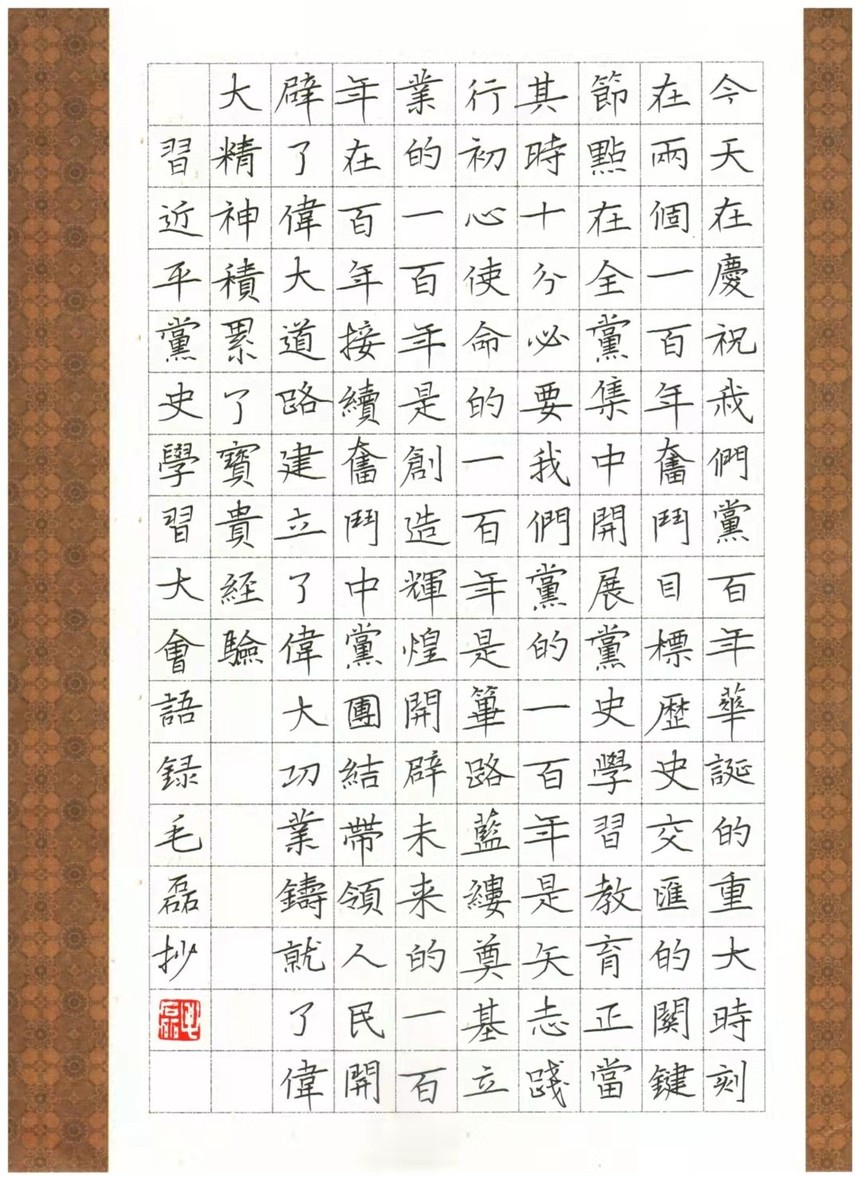 今天在慶祝我們黨百年華誕的重大時刻
在兩個一百年奮鬥目標歷史交匯的關鍵
節點在全黨集中開展黨史學習教育正當
其時十分必要我們黨的一百年是矢志踐
行初心使命的一百年是篳路藍縷奠基立
業的一百年是創造輝煌開辟未来的一百
年在百年接續奮鬥中黨團結帶領人民開
辟了偉大道路建立了偉大功業鑄就了偉
大精神積累了寶貴經驗
習近平黨史學習大會語録毛磊抄
毛磊